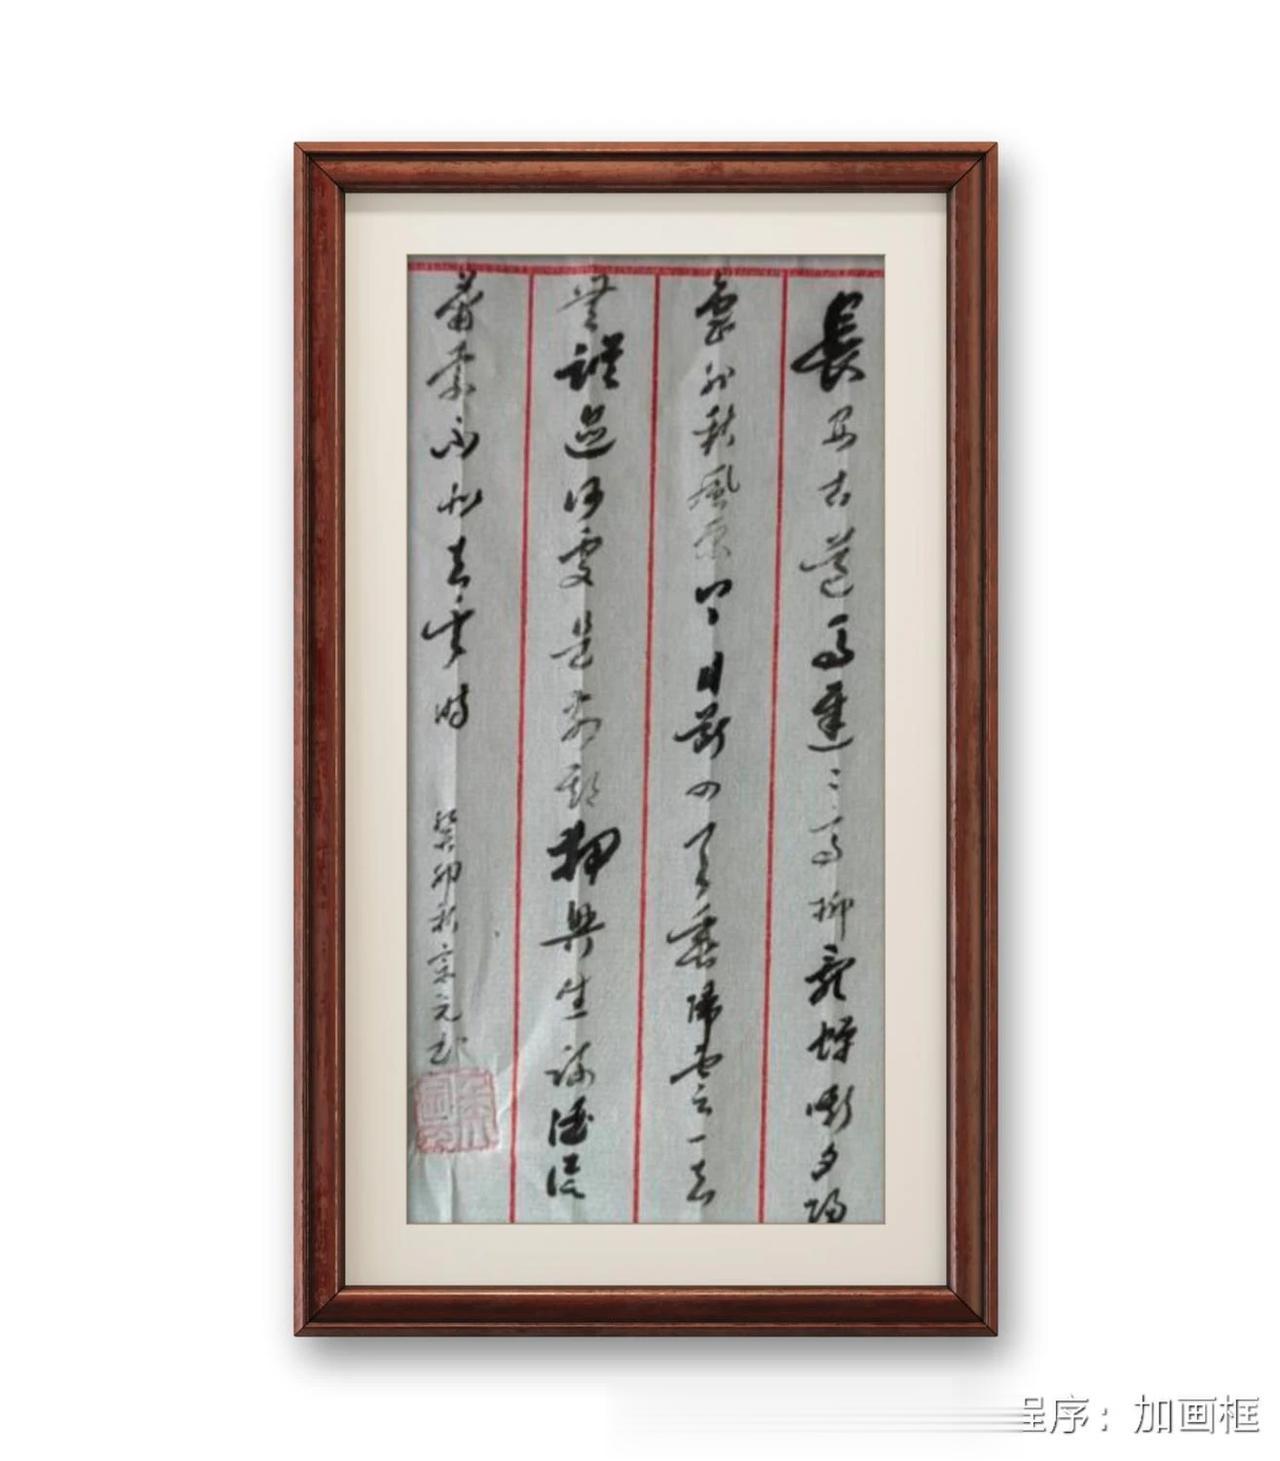 長安古道馬遲〻高柳亂蟬嘶夕陽
島外秋風原上目斷四天垂歸雲一去
無蹤迹何處是前期狎興生疏酒徒
蕭索不似去年時
癸卯秋宗元书
呈序：加画框